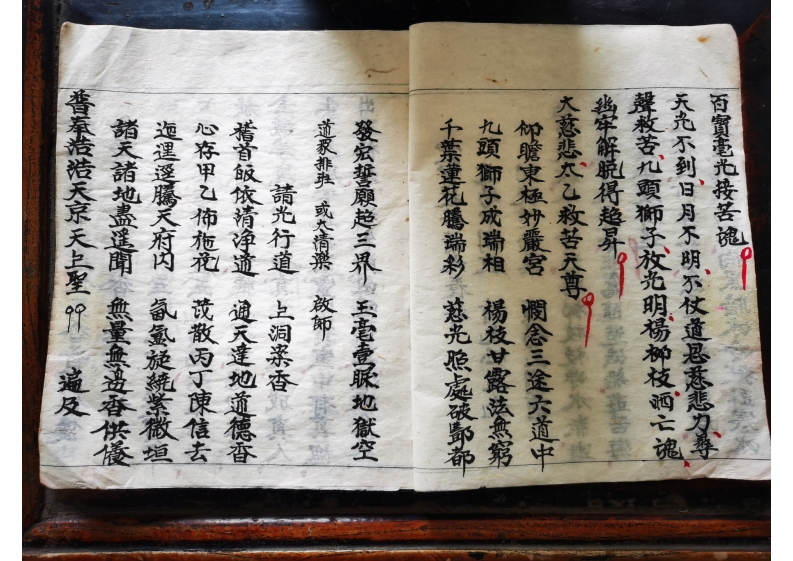 百寶毫光接苦魂
天光不到日月不明不仗道恩慈悲力尋
聲救苦九頭獅子放光明楊柳枝洒亡魂
幽牢解脱得超昇
大慈悲太乙救苦天尊
仰瞻東極妙嚴宮 憫念三途六道中
九頭獅子成瑞相 楊枝甘露法無窮
千葉蓮花騰瑞彩 慈光照處破酆都
發宏誓願超三界 玉毫壹照地獄空
道眾排班 或大清樂 啟師
請光行道 上洞梁香
稽首皈依清淨道 通天達地道德香
心存甲乙佈施花 茂散丙丁陳信去
迤邐逕騰天府內 氤氳旋繞紫微垣
諸天諸地盡遥聞 無量無边香供養
普奉浩浩天京天上聖 遍及